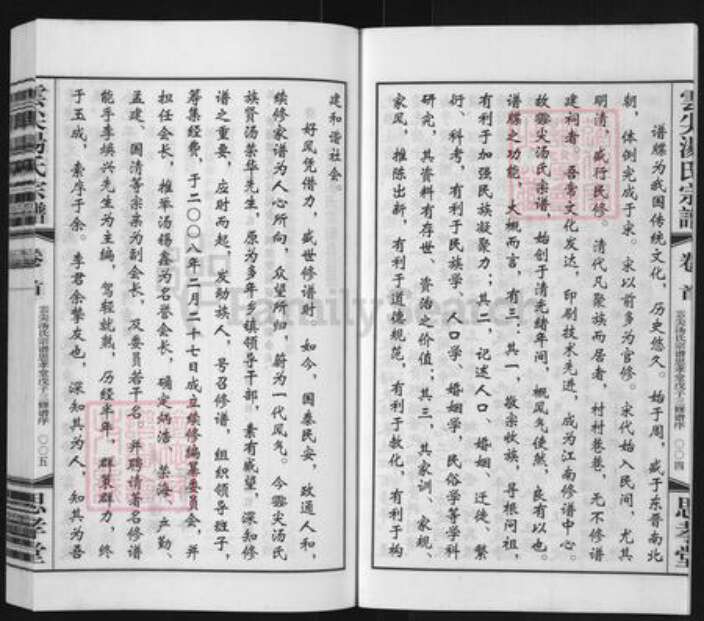 谱牒为我国传统文化，历史悠久。始于周，盛于东晋南北
朝，体例完成于宋。宋以前多为官修。宋代始入民间，尤其
明清，盛行民修。清代凡聚族而居者，村村巷巷，无不修谱
建祠者。吾常文化发达，印刷技术先进，成为江南修谱中心。
故云尖汤氏宗谱，始创于清光绪年间，概风气使然，良有以也。
谱牒之功能，大概而言，有三：其一，敬宗收族，寻根问祖，
有利于加强民族凝聚力；其二，记述人口、婚姻、迁徙、繁
衍、科考，有利于民族学、人口学、婚姻学，民俗学等学科
研究，其资料有存世、资治之价值；其三，其家训、家规、
家风，推陈出新，有利于道德规范，有利于教化，有利于构
雲尖湯氏宗譜
卷首
云尖汤氏宗谱思孝堂戊子三修谱序
〇〇四
思孝堂
建和谐社会。
好风凭借力，盛世修谱时。如今，国泰民安，政通人和，
续修家谱为人心所向，众望所归，蔚为一代风气。今云尖汤氏
族贤汤荣华先生，原为多年乡镇领导干部，素有威望，深知修
谱之重要，应时而起，发动族人，号召修谱，组织领导班子，
筹集经费，于二〇〇八年二月二十七日成立续修编纂委员会，并
担任会长，推举汤锡鑫为名誉会长，确定炳浩、荣海、产勤、
孟建、国清等宗亲为副会长，及委员若干名，并聘请著名修谱
能手李焕兴先生为主编，驾轻就熟，历经半年，群策群力，终
于玉成，索序于余。李君余挚友也，深知其为人，知其为吾
雲尖湯氏宗譜
卷首
云尖汤氏宗谱思孝堂戊子三修谱序
〇〇五
思孝堂
FamilySearch